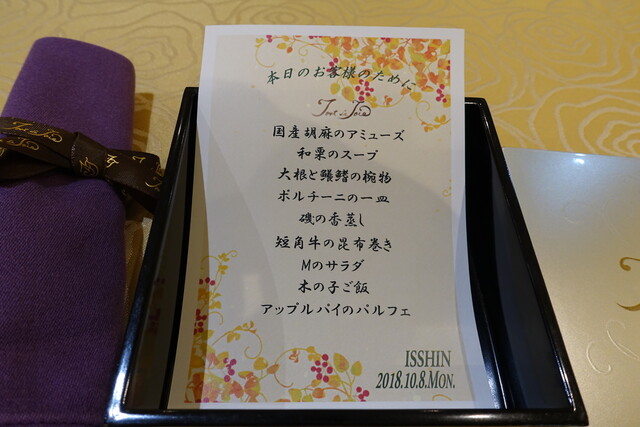 本日のお客様のために
国産胡麻のアミューズ
和栗のスープ
大根と鱶鰭の椀物
ポルチーニの一皿
磯の香蒸し
短角牛の昆布巻き
Mのサラダ
木の子ご飯
アップルパイのパルフェ
ISSHIN
2018.10.8.MON.